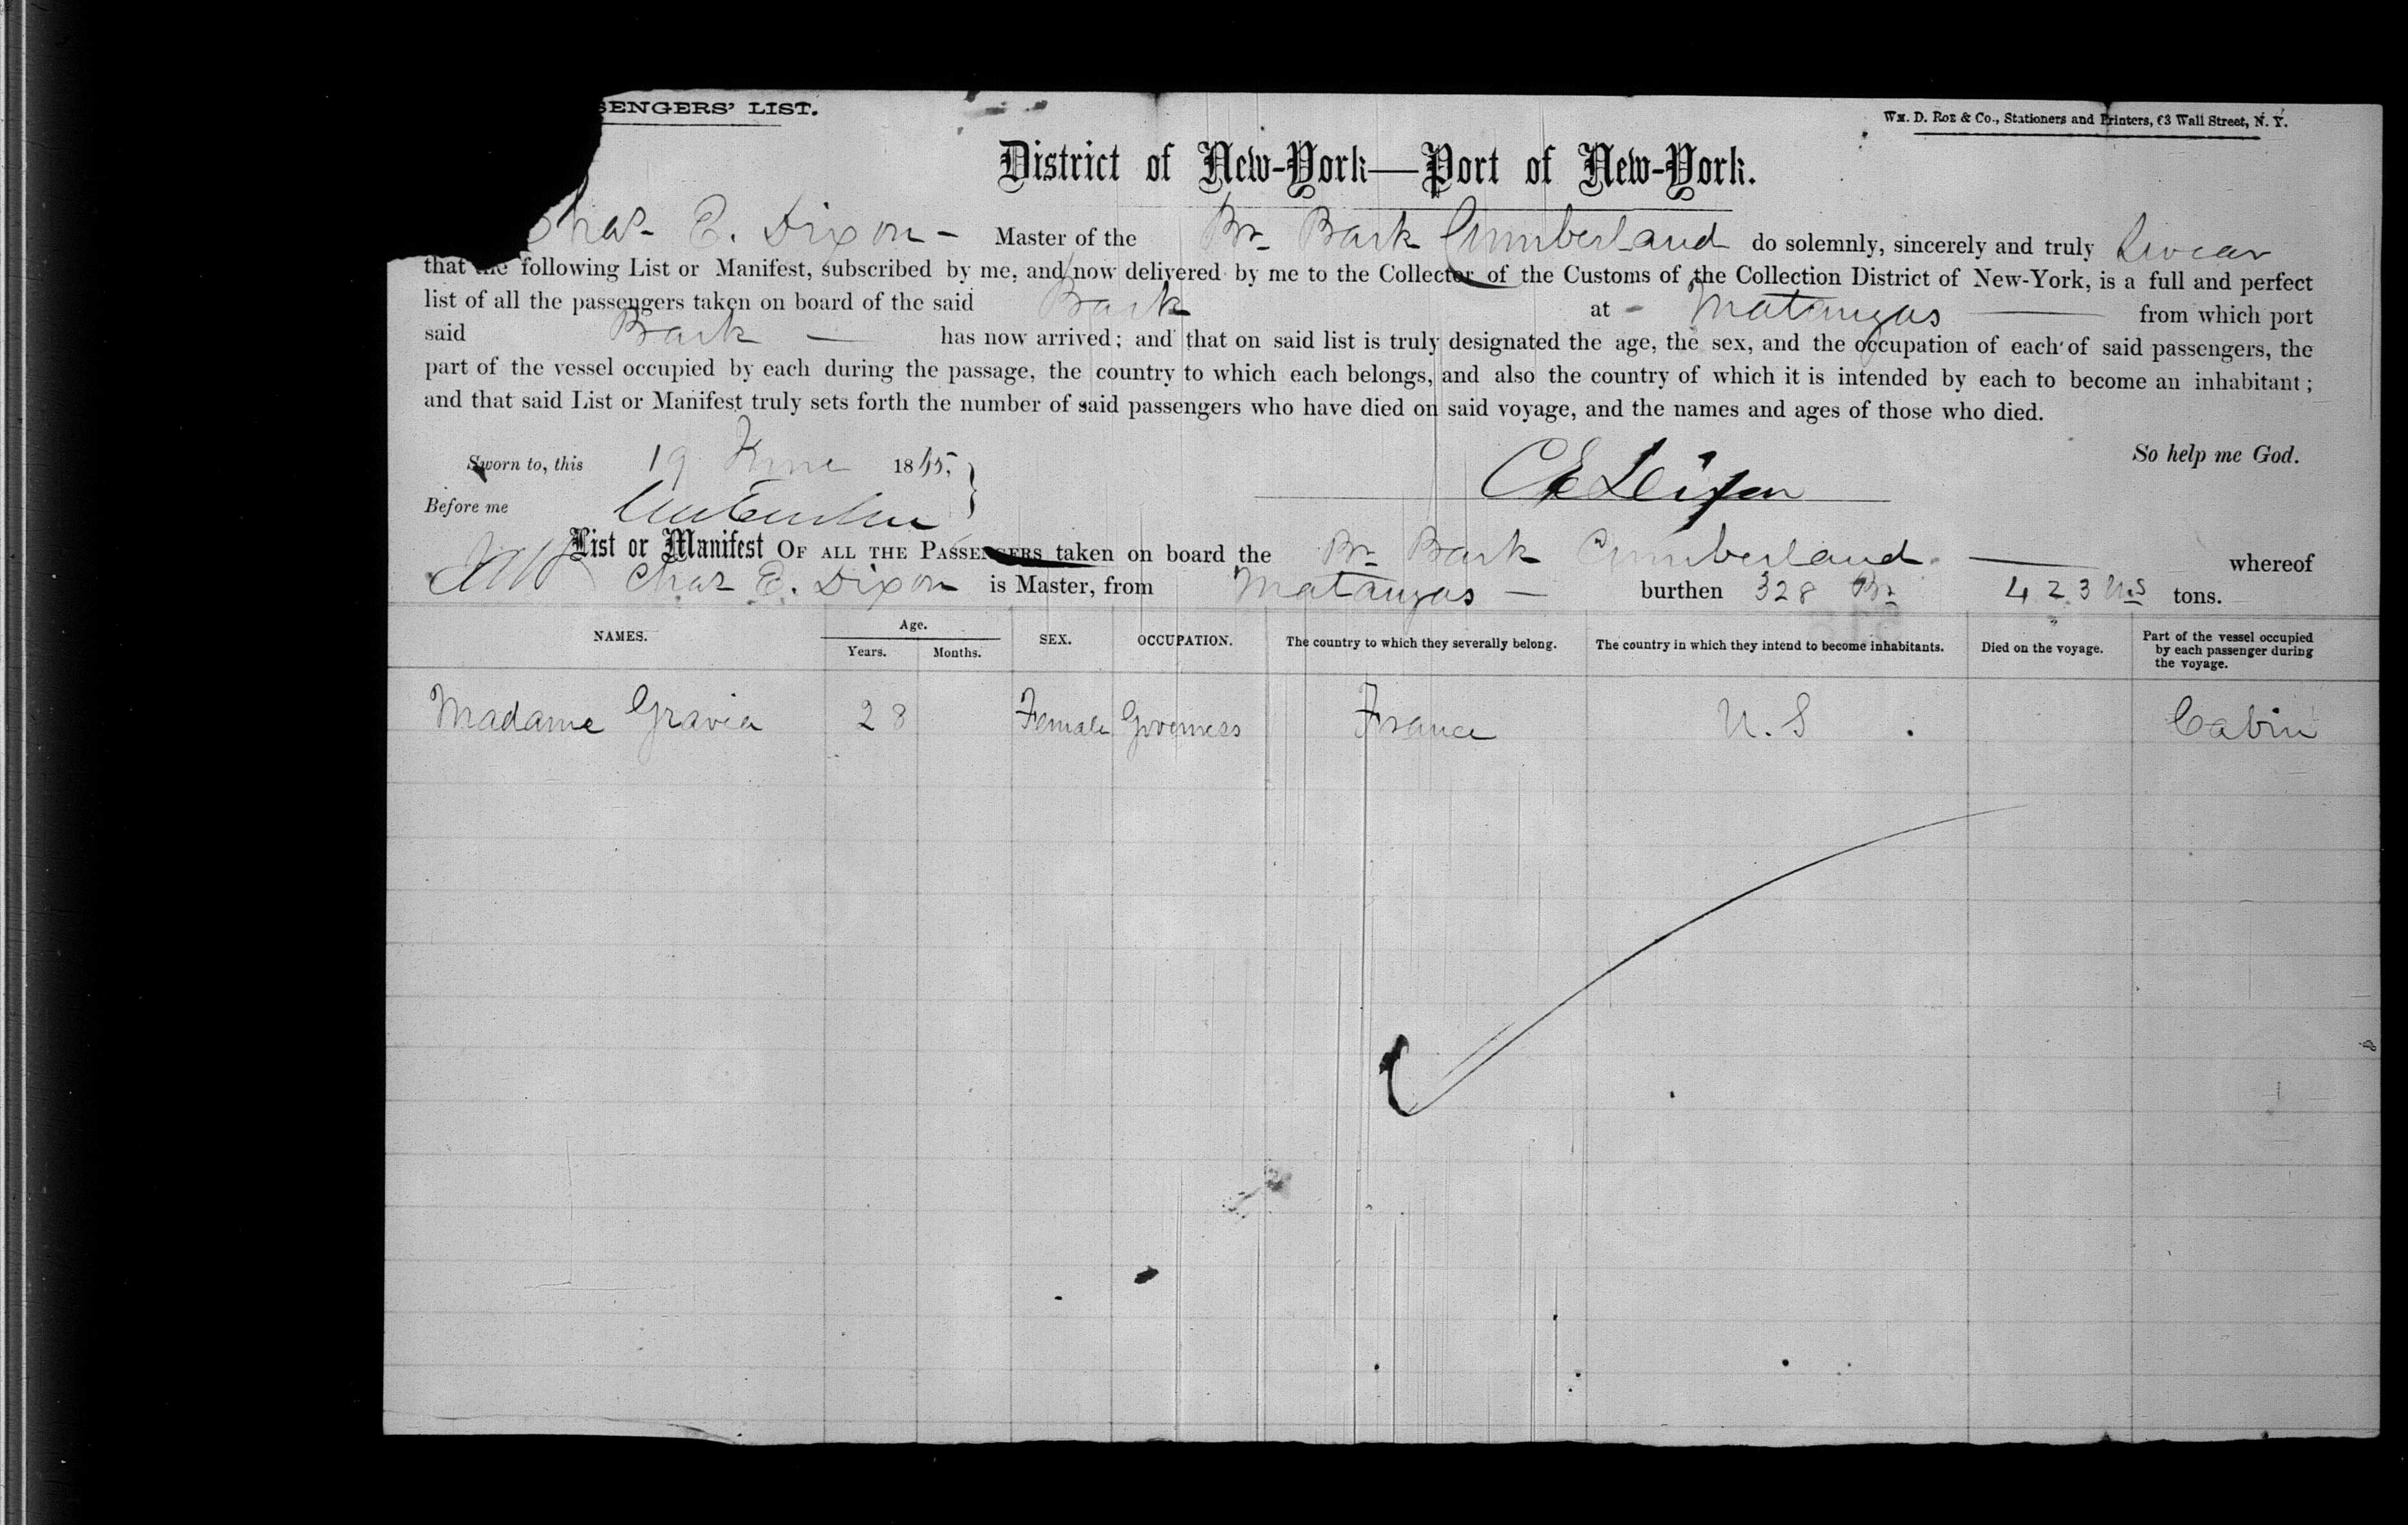 SENGERS' LIST.
Wm. D. Roe & Co., Stationers and Printers, 63 Wall Street, N. Y.
District of New-York—Port of New-York.
Chas E. Dixon - Master of the Br Bark Cumberland do solemnly, sincerely and truly Swear
that the following List or Manifest, subscribed by me, and now delivered by me to the Collector of the Customs of the Collection District of New-York, is a full and perfect
list of all the passengers taken on board of the said Bark at - Matanzas — from which port
said Bark — has now arrived; and that on said list is truly designated the age, the sex, and the occupation of each of said passengers, the
part of the vessel occupied by each during the passage, the country to which each belongs, and also the country of which it is intended by each to become an inhabitant;
and that said List or Manifest truly sets forth the number of said passengers who have died on said voyage, and the names and ages of those who died.
So help me God.
Sworn to, this 19 June 1865.
C E Dixon
Before me
List or Manifest OF ALL THE PASSENGERS taken on board the Br Bark Cumberland — whereof
Chas E. Dixon is Master, from Matanzas — burthen 328 Br 423 U.S tons.
NAMES. Age. Years. Months. SEX. OCCUPATION. The country to which they severally belong. The country in which they intend to become inhabitants. Died on the voyage. Part of the vessel occupied by each passenger during the voyage.
Madame Gravia 28 Female Governess France U.S Cabin